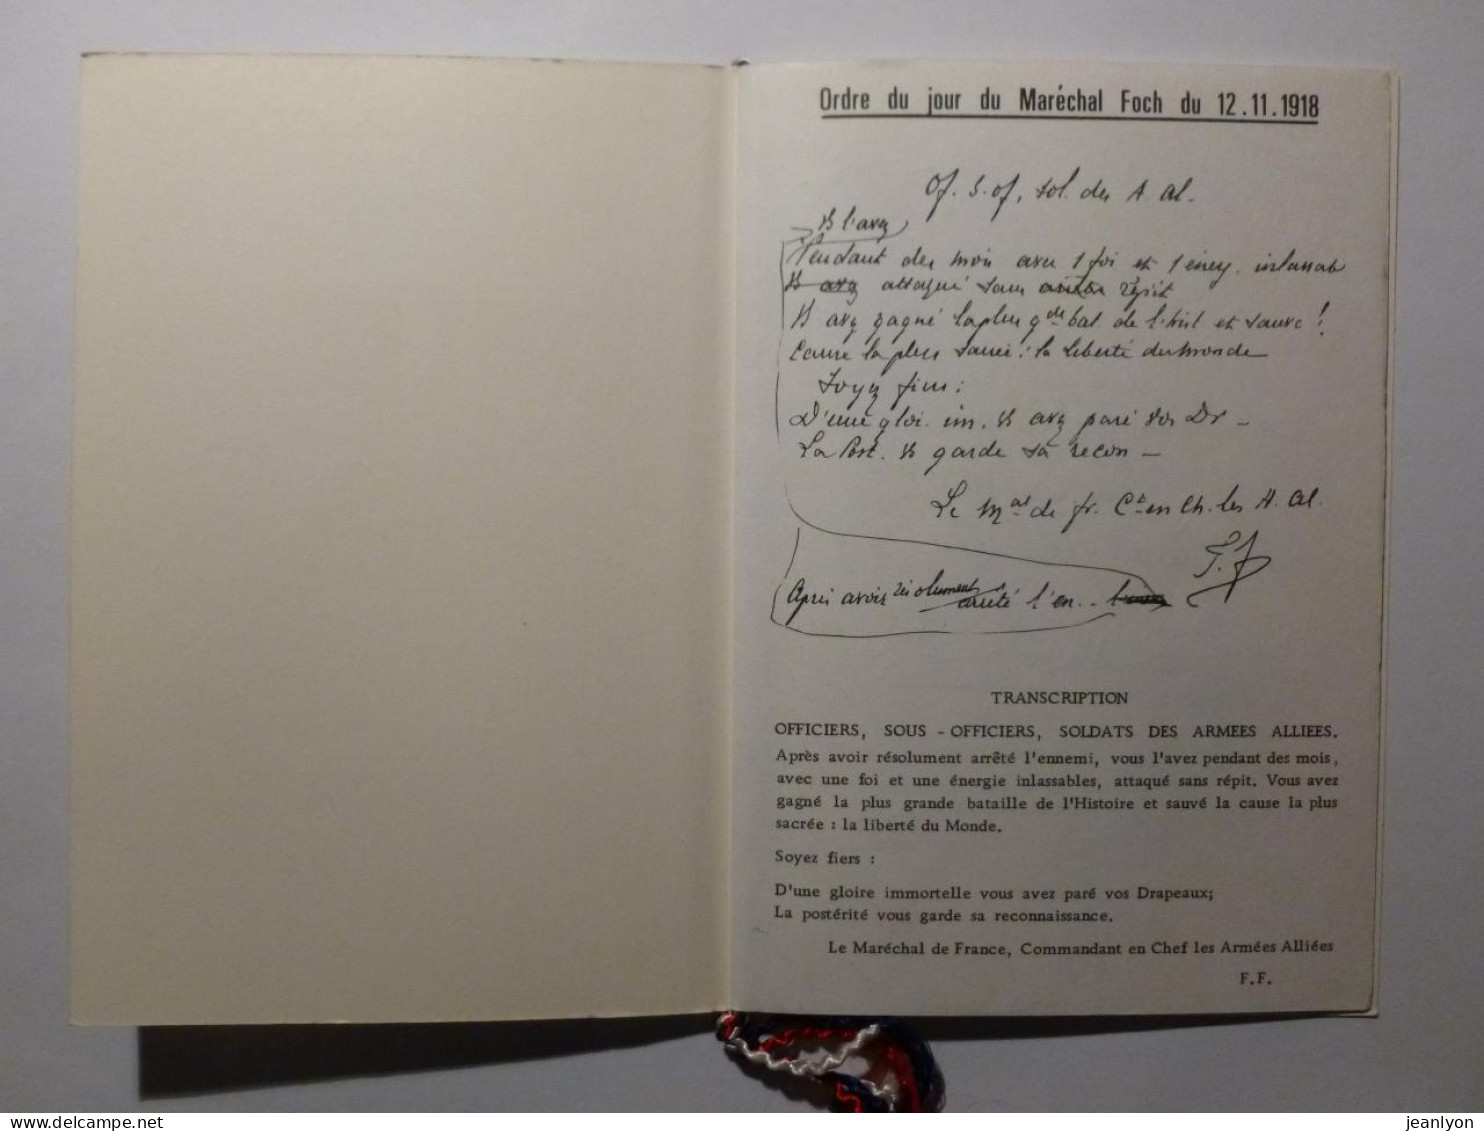 Ordre du jour du Maréchal Foch du 12.11.1918
Of. S. of, sol. des A. Al.
Vs l'avez
Pendant des mois avec 1 foi et 1 énerg. inlassab
Vs avez attaqué sans répit
Vs avez gagné la plus gde bat. de l'hist et sauvé !
Cause la plus sacrée : la liberté du monde
Soyez fiers :
D'une gloi. im. vs avez paré vos Dr -
La Post. vs garde sa recon -
Le Mal de fr. Ct en Ch. les A. Al.
F. F
Après avoir résolument arrêté l'en..
TRANSCRIPTION
OFFICIERS, SOUS - OFFICIERS, SOLDATS DES ARMEES ALLIEES.
Après avoir résolument arrêté l'ennemi, vous l'avez pendant des mois,
avec une foi et une énergie inlassables, attaqué sans répit. Vous avez
gagné la plus grande bataille de l'Histoire et sauvé la cause la plus
sacrée : la liberté du Monde.
Soyez fiers :
D'une gloire immortelle vous avez paré vos Drapeaux;
La postérité vous garde sa reconnaissance.
Le Maréchal de France, Commandant en Chef les Armées Alliées
F.F.
www.delcampe.net
jeanlyon